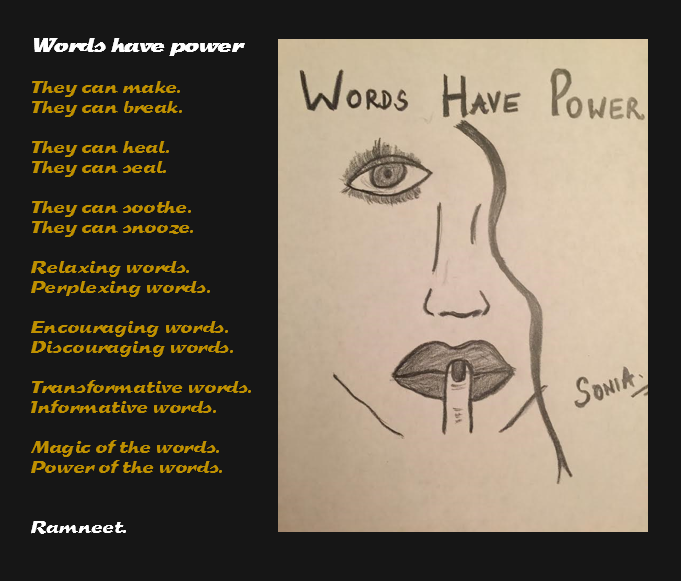 Words have power
They can make.
They can break.
They can heal.
They can seal.
They can soothe.
They can snooze.
Relaxing words.
Perplexing words.
Encouraging words.
Discouraging words.
Transformative words.
Informative words.
Magic of the words.
Power of the words.
Ramneet.
WORDS HAVE POWER
SONIA.